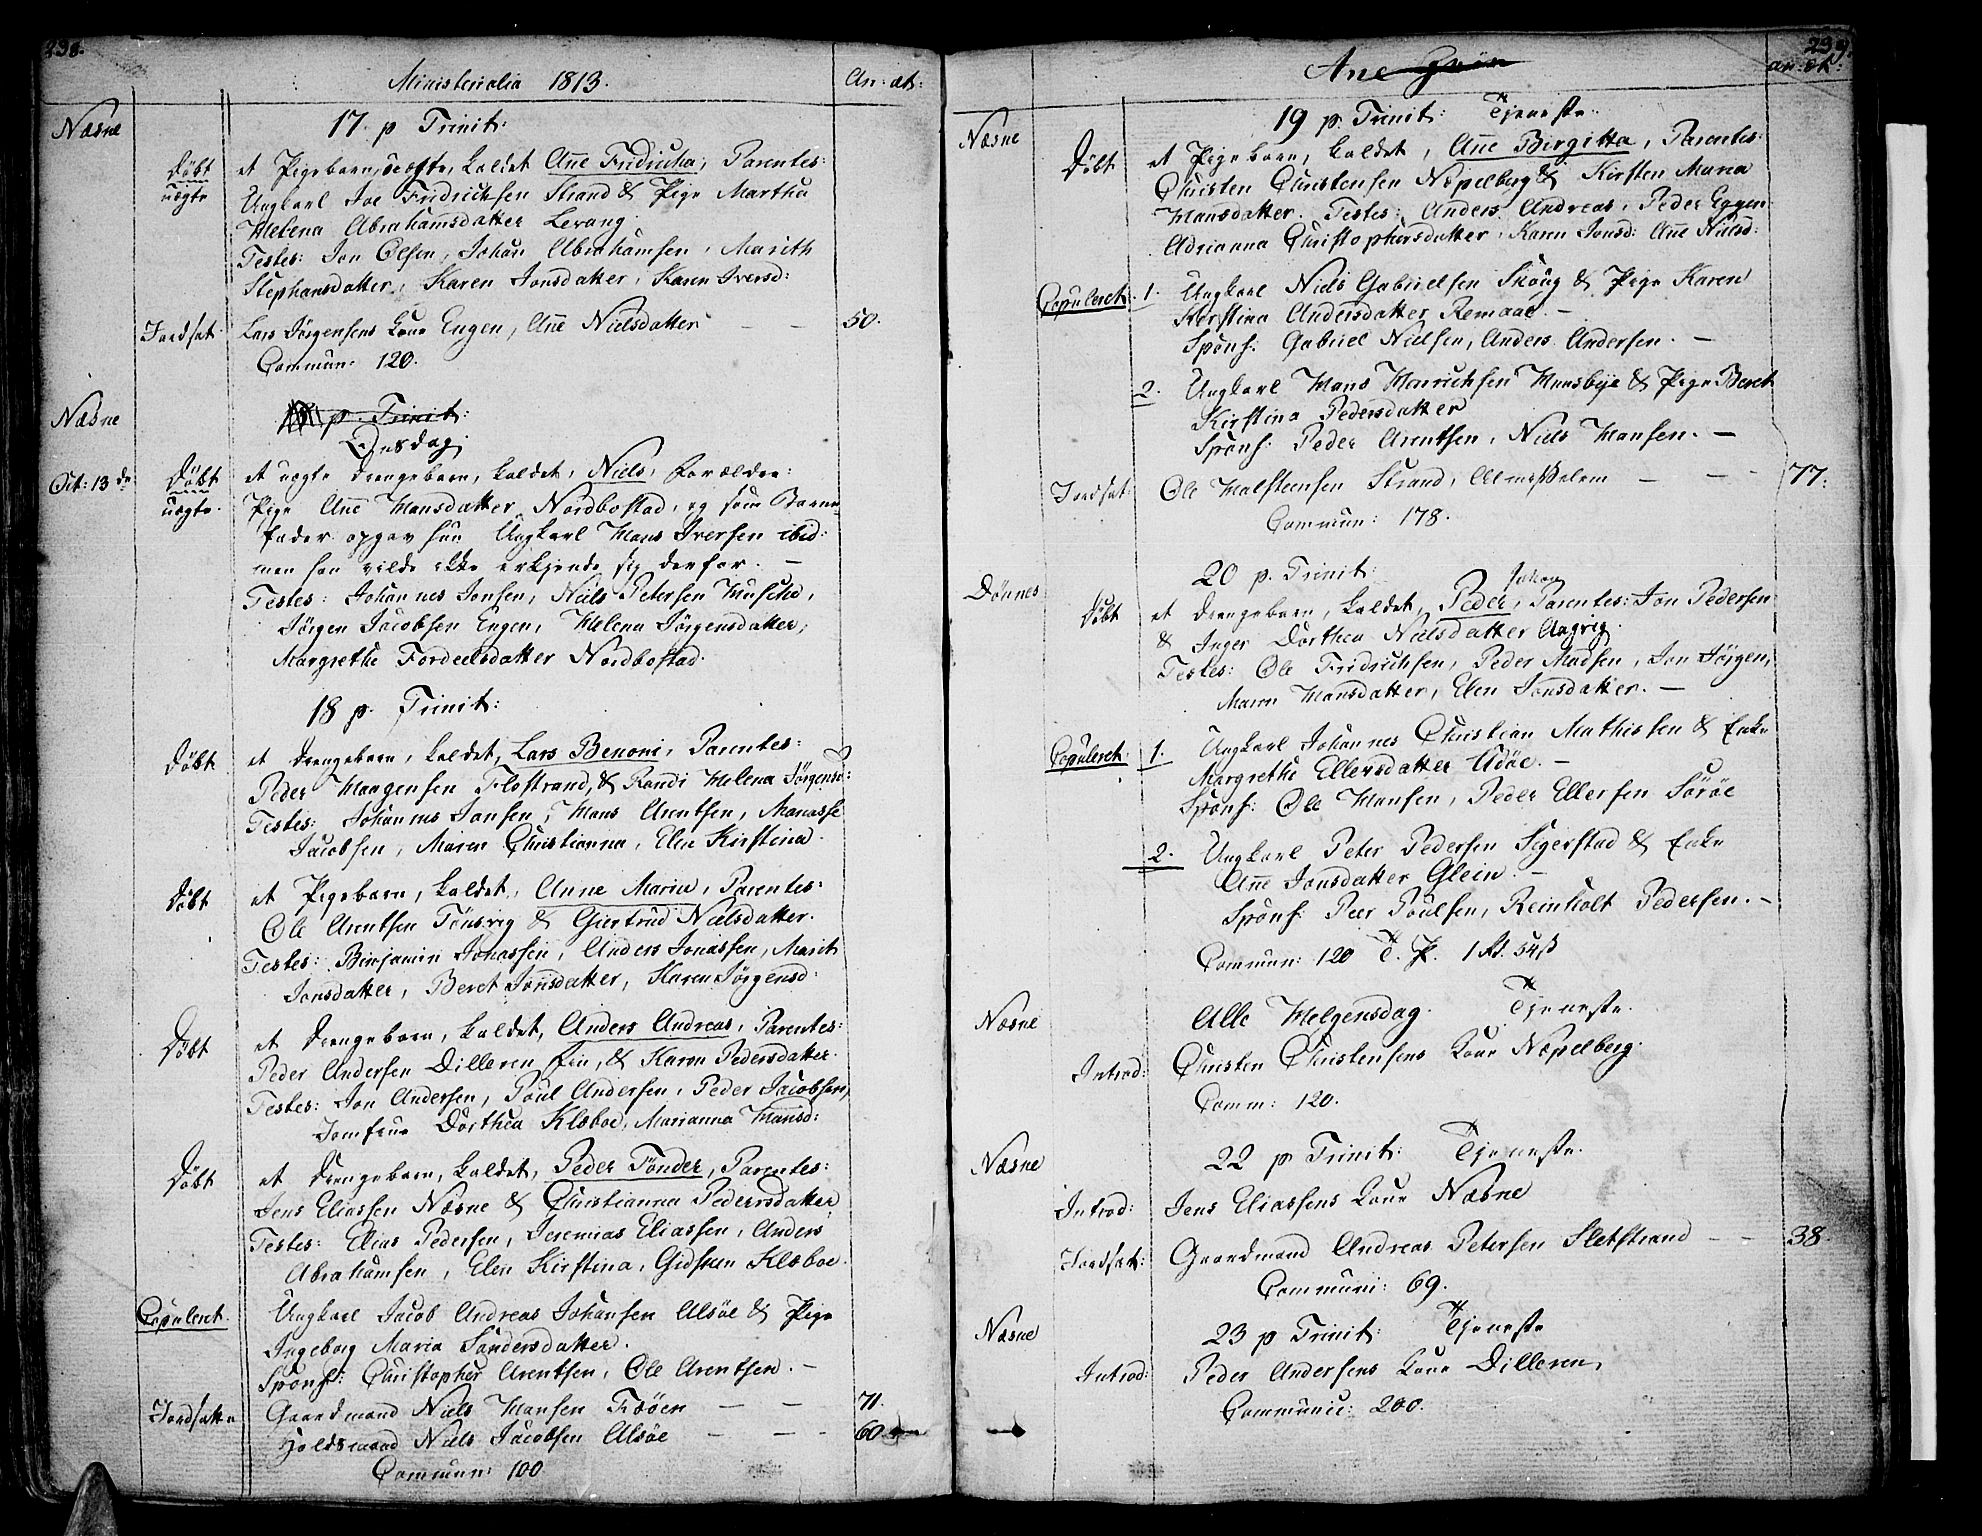 238.
Ministerialia 1813.
An: æt:
Næsne
17. p Trinit:
Døbt
uægte
et Pigebarn, uægte, kaldet Añe Fridricha, Parentes:
Ungkarl Joe Fridrichsen Strand & Pige Martha
Helena Abrahamsdatter Levang.
Testes: Jon Olsen, Johan Abrahamsen, Marith
Stephansdatter, Karen Jonsdatter, Karen Iversd:
Jordsat Lars Jörgensens Kone Engen, Añe Nielsdatter — — 50.
Commun: 120.
Næsne
p. Trinit:
Onsdag.
Oct: 13de
Døbt
uægte.
et uægte Drengebarn, kaldet, Niels, Forældre:
Pige Añe Hansdatter Nordbostad, og som Barne-
fader opgav hun Ungkarl Hans Iversen ibid:
men han vilde ikke erkjende sig derfor. —
Testes: Johannes Jonsen, Niels Petersen Husbye,
Jörgen Jacobsen Engen, Helena Jörgensdatter,
Margrethe Fordeelsdatter Nordbostad.
18 p. Trinit:
Døbt et Drengebarn, kaldet, Lars Benoni, Parentes:
Peder Haagensen Flostrand, & Randi Helena Jörgensd:
Testes: Johannes Jansen, Hans Arentsen, Manasse
Jacobsen, Maren Christianna, Elen Kirstina.
Døbt et Pigebarn, kaldet, Anne Maria, Parentes:
Ole Arentsen Tönsvig & Giertrud Nielsdatter.
Testes: Binjamin Jonassen, Anders Jonassen, Marit
Jonsdatter, Beret Jonsdatter, Karen Jörgensd:
Døbt et Drengebarn, kaldet, Anders Andreas, Parentes:
Peder Andersen Dilleren, & Karen Pedersdatter.
Testes: Jon Andersen, Poul Andersen, Peder Jacobsen,
Jomfrue Dorthea Klæboe, Marianna Hansd:
Døbt et Drengebarn, kaldet, Peder Tönder, Parentes:
Jens Eliassen Næsne & Christianna Pedersdatter
Testes: Elias Pedersen, Jeremias Eliassen, Anders
Abrahamsen, Elen Kirstina, Gidsken Klæboe.
Copuleret. Ungkarl Jacob Andreas Johansen Alsöe & Pige
Ingeborg Maria Sandersdatter.
Sponf: Christopher Arentsen, Ole Arentsen. —
Jordsatte Gaardmand Niels Hansen Frööen — — 71.
Niels Jacobsen Alsöe — — 60
Commun: 100
239.
Ane Grön
an: æt:
Næsne
19 p. Trinit: Tjeneste.
Døbt et Pigebarn, kaldet, Añe Birgitta, Parentes:
Christen Christensen Næpelberg & Kirsten Maria
Hansdatter. Testes: Anders Andreas, Peder Eggen
Adrianna Christophersdatter, Karen Jonsd: Añe Nielsd:
Copuleret: 1. Ungkarl Niels Gabrielsen Skoug & Pige Karen
Kirstina Andersdatter Remaae. —
Sponf: Gabriel Nielsen, Anders Andersen. —
2. Ungkarl Hans Henrichsen Huusbye & Pige Beret
Kirstina Pedersdatter
Sponf: Peder Arentsen, Niels Hansen. —
Jordsat: Ole Halsteensen Strand, Almisselem — — 77.
Commun: 178.
Dönnes
20 p. Trinit:
Johan
Døbt et Drengebarn, kaldet, Peder, Parentes: Jon Pedersen
& Inger Dorthea Nielsdatter Aagvig.
Testes: Ole Fridrichsen, Peder Madsen, Jon Jörgen,
Maren Hansdatter, Elen Jonsdatter. —
Copuleret: 1. Ungkarl Johannes Christian Mathissen & Enke
Margrethe Ellersdatter Udöe. —
Sponf: Ole Hansen, Peder Ellersen Söröe
2. Ungkarl Peter Pedersen Sigerstad & Enke
Añe Jonsdatter Glein. —
Sponf: Peer Poulsen, Reinholt Pedersen. —
Commun: 120 T. P. 1 Rd. 54ß
Næsne
Alle Helgensdag. Tjeneste.
Introd: Christen Christensens Kone Næpelberg.
Comm: 120.
Næsne
22 p Trinit: Tjeneste.
Introd: Jens Eliassens Kone Næsne
Jordsat: Gaardmand Andreas Petersen Sletstrand — — 38
Communi: 69.
Næsne
23 p Trinit: Tjeneste
Introd: Peder Andersens Kone Dilleren,
Communic: 200.